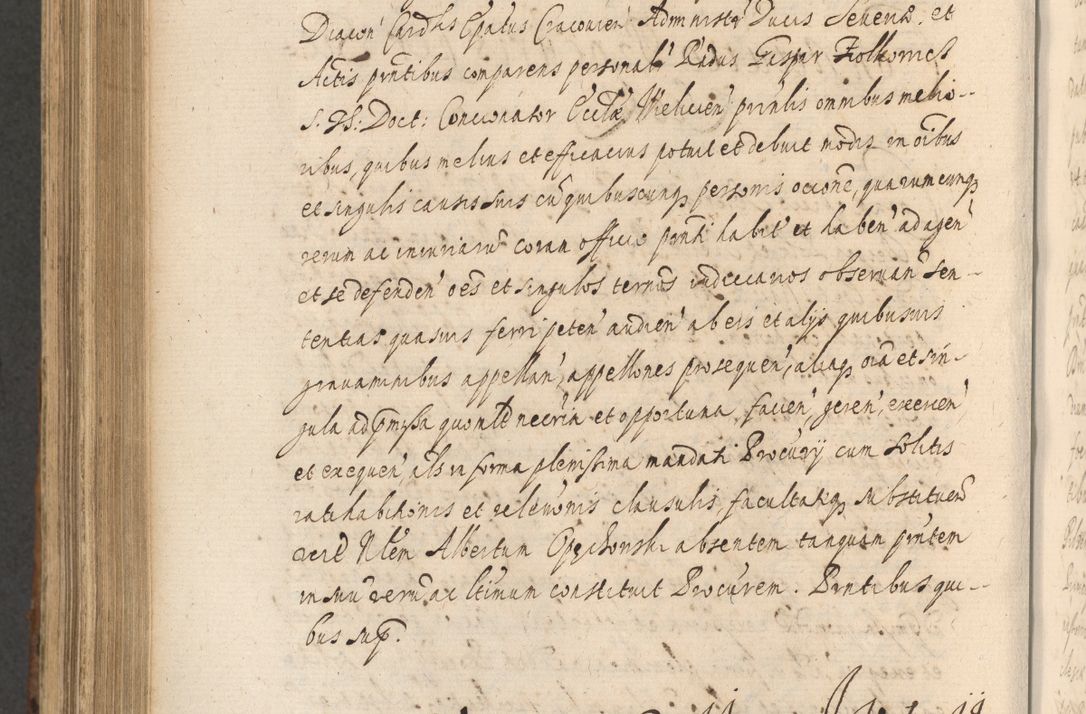 Diacon' Cardlis Epatus Cracovien' Administr' Ducis Severiae. et
Actis pntibus comparens personalr Rndus Gaspar Ziolkowicz
S. Th: Doct: Concionator Ecclae Wielicien' prinlis omnibus melio-
ribus, quibus melius et efficacius potuit et debuit modis in oibus
et singulis causis suis cu quibuscunq personis ocione, quarumcunq
rerum ac iniuriaru coram officio pnti habit' et haben' ad agen'
et se defenden' oes et singulos termos iudiciarios observan' sen-
tentias quasvis ferri peten' audien' ab eis et alijs quibusvis
gravaminibus appellan', appellones prosequen', aliaq oia et sin-
gula ad pmissa quomlt necria et opportuna facien', geren', exercen'
et exequen', als in forma plenissima mandati Procurij cum solitis
ratihabitionis et relevonis clausulis, facultateq substituen
verit Nlem Albertum Opackowski absentem tanquam pntem
in suu veru ac ltimum constituit Procurem. Pntibus qui-
bus sup.